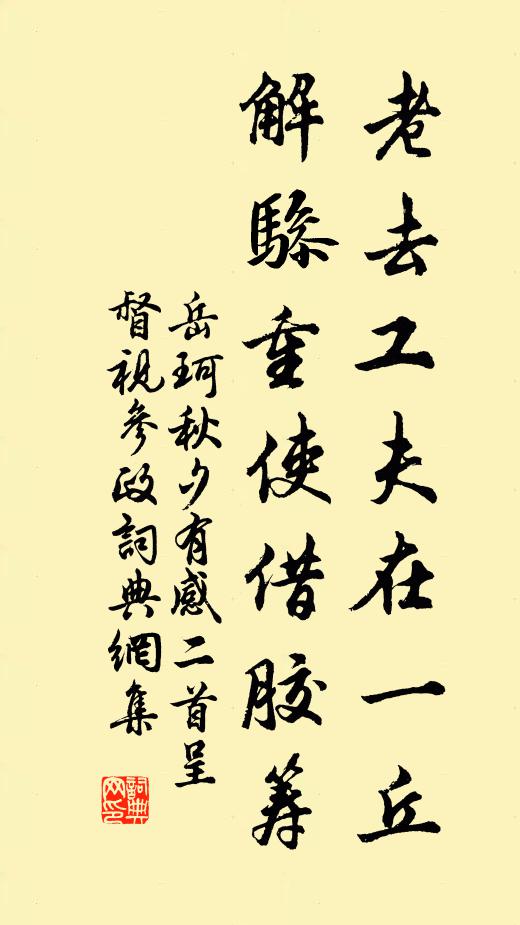 老去工夫在一丘
解驂重使借胶筹
岳珂秋夕有感二首呈
督視參政詞典網集
詞典
网印